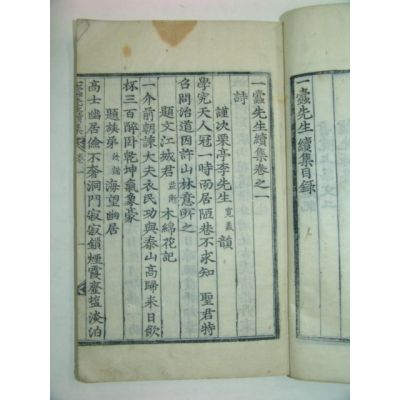 一蠹先生續集目錄
一蠹先生續集卷之一
詩
謹次栗亭李先生寬義韻
學究天人冠一時而居陋巷不求知 聖君特
召問治道因許山林意所之
題文江城君益漸木綿花記
一介前朝諫大夫衣民功與泰山高歸来日飲
杯三百醉卧乾坤氣象豪
題族弟海望幽居
高士幽居俗不奔洞門寂寂鎖煙霞虀塩淡泊